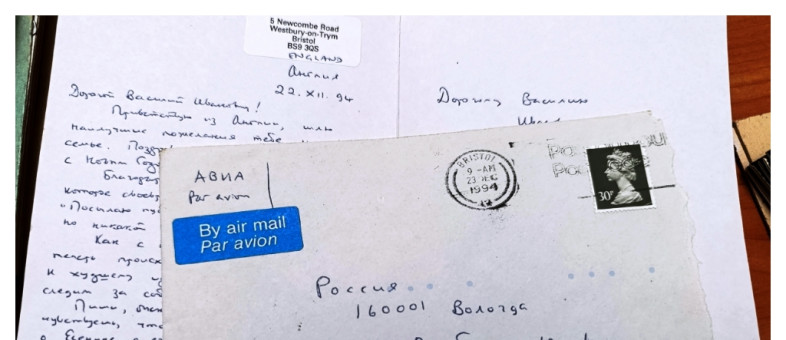 5 Newcombe Road
Westbury-on-Trym
Bristol
BS9 3QS
ENGLAND
Англия
22.XII.94
Дорогой Василий Иванович!
Приветствую из Англии, шлю
наилучшие пожелания тебе и
семье. Поздр
с Новым Годо
Благодар
которое
"Посылаю
но никакой
Как я
теперь проис
к худшему
следим за соб
Пиши,
чувствуешь, что
о Есенине
Дорогому Василию
Ивано
АВИА
Par avion
By air mail
Par avion
BRISTOL
9-AM
23 DEC
1994
30P
Россия
160001 Вологда